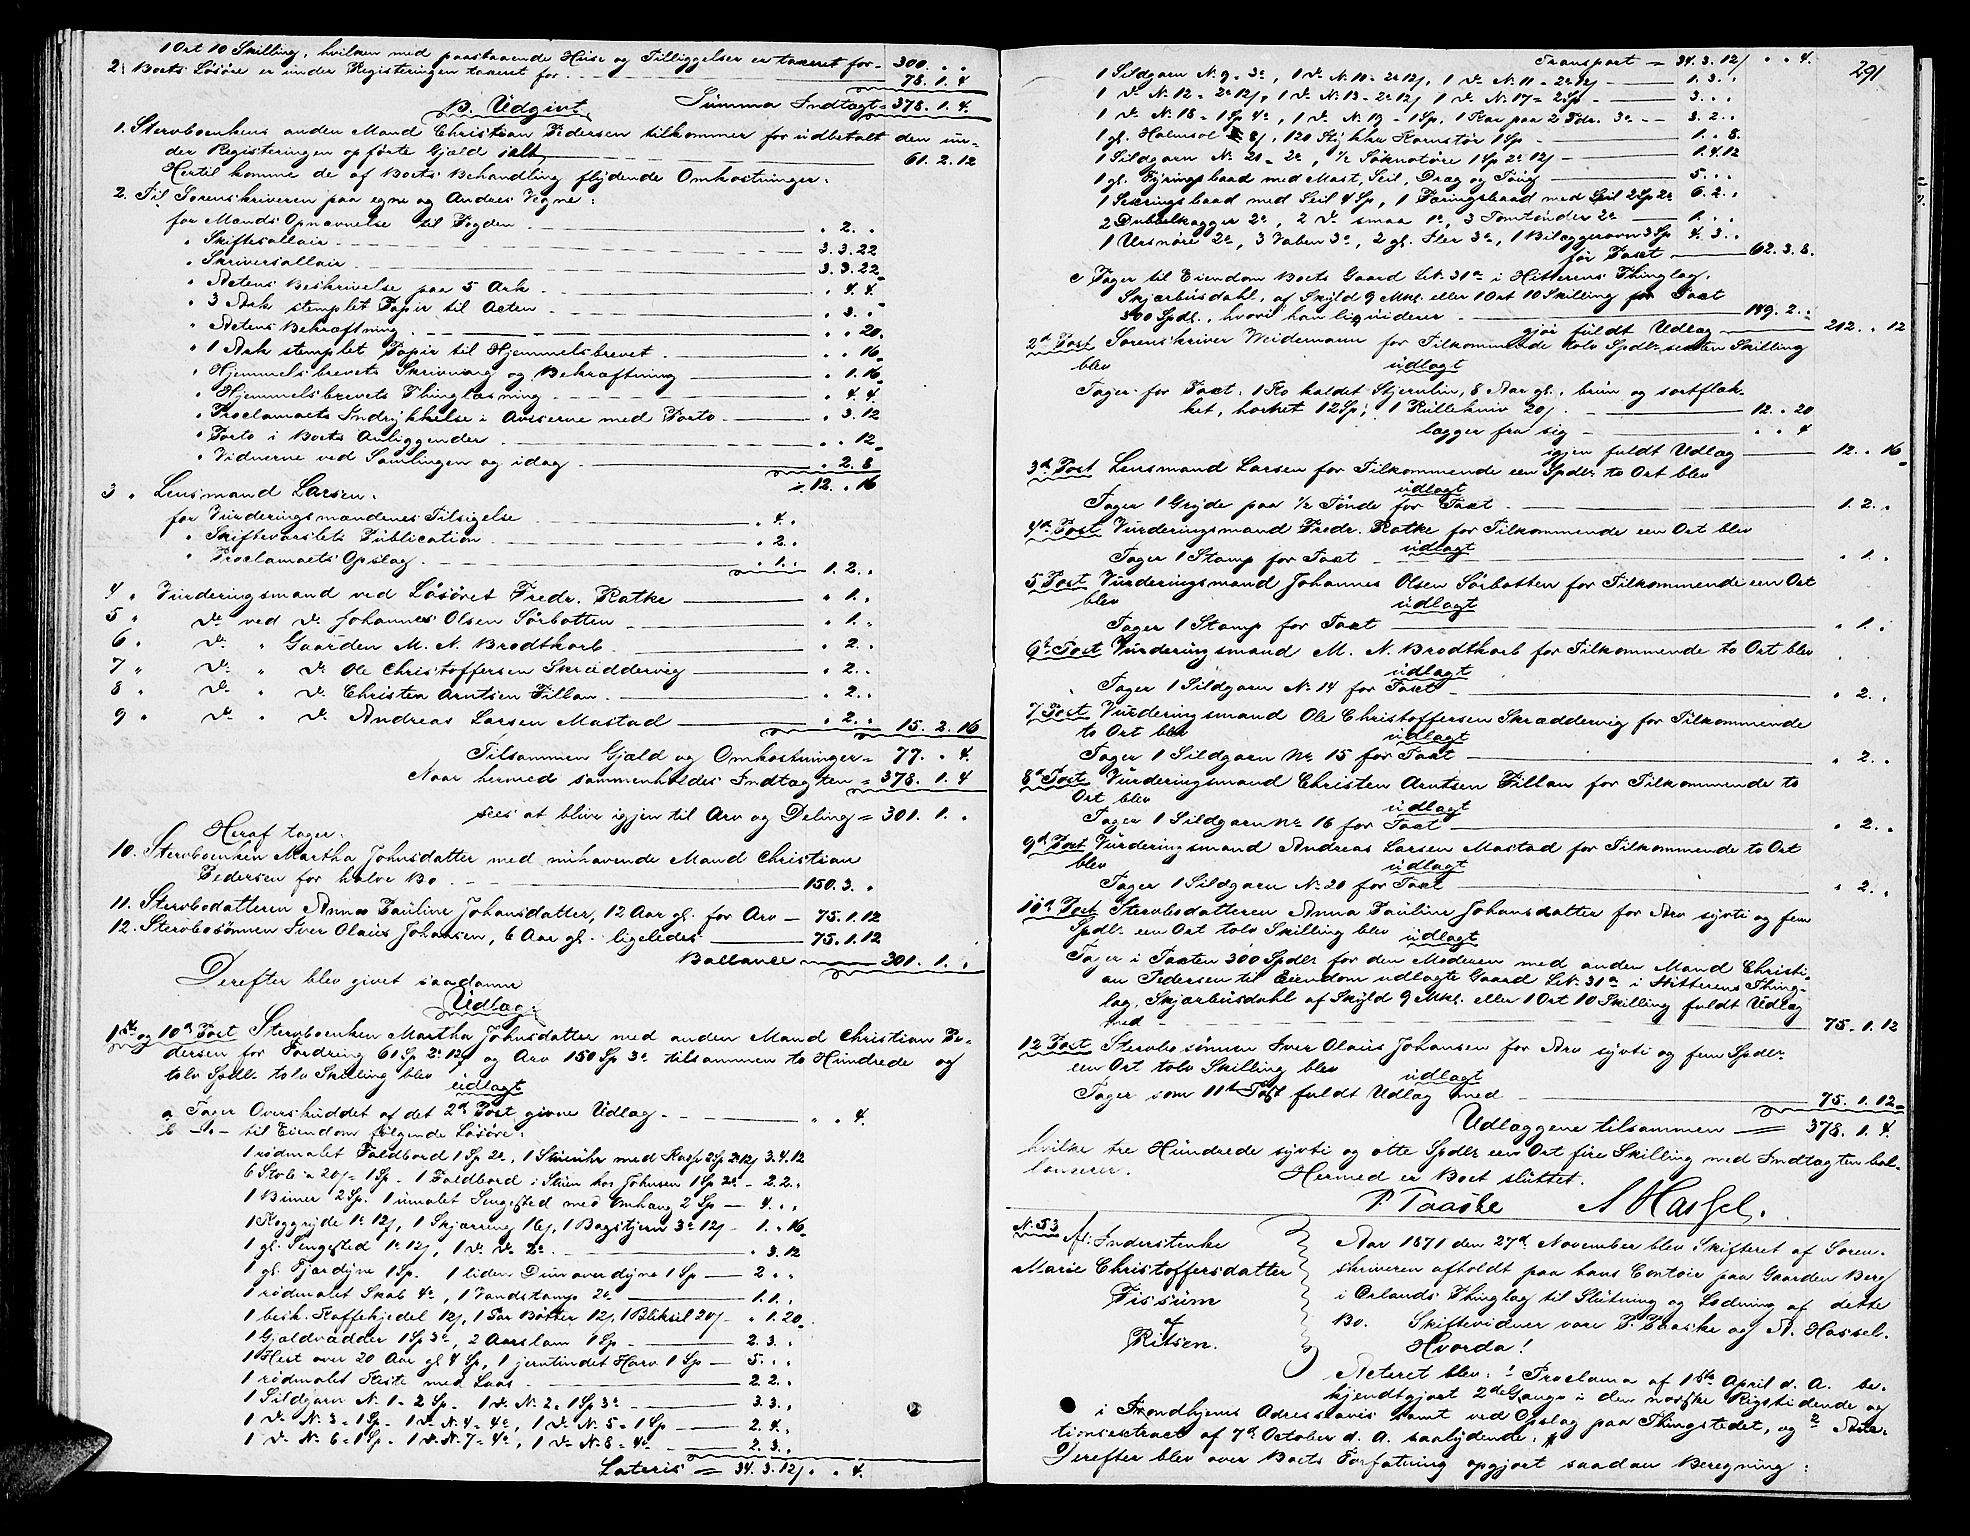 1 Ort 10 Skilling, hvilken med paastaaende Huse og Tilliggelser er taxeret for - 300. . .
2, Boets Løsøre er under Registeringen taxeret for - 78. 1. 4
Summa Indtægt = 378. 1. 4.
B. Udgivt
1. Stervboenkens anden Mand Christian Pedersen tilkommer for udbetalt den un-
der Registeringen opførte Gjæld ialt 61. 2. 12
Hertil komme de af Boets Behandling flydende Omkostninger:
2. Til Sorenskriveren paa egne og Andres Vegne:
for Mænds Opnævnelse til Fogden . 2. .
" Skiftesallair 3. 3. 22
" Skriversallair 3. 3. 22
" Actens Beskrivelse paa 5 Ark . 4. 4.
" 3 Ark stemplet Papir til Acten . 3. .
" Actens Bekræftning . . 20.
" 1 Ark stemplet Papir til Hjemmelsbrevet . . 16
" Hjemmelsbrevets Skrivning og Bekræftning . 1. 16
" Hjemmelsbrevets Thinglæsning . 4. 4.
" Proclamaets Indrykkelse i Aviserne med Porto . 3. 12
" Porto i Boets Anliggender . . 12
" Vidnerne ved Samlingen og idag . 2. 8
12. . 16
3 " Lensmand Larsen:
for Vurderingsmændenes Tilsigelse . 4. .
" Skiftevarslets Publication . 2. .
" Proclamaets Opslag . 1. . 1. 2. .
4 " Vurderingsmand ved Løsøret Fredr. Ratke . 1. .
5 " do ved do Johannes Olsen Sørbotten . 1. .
6 " do " Gaarden M. N. Brodtkorb . 2. .
7 " do " do Ole Christoffersen Skræddervig . 2. .
8 " do " do Christen Arntsen Fillan . 2. .
9 " do " do Andreas Larsen Mastad . 2. . 15. 2. 16
Tilsammen Gjæld og Omkostninger = 77. . 4.
Naar hermed sammenholdes Indtægten = 378. 1. 4
sees at blive igjen til Arv og Deling = 301. 1. .
Heraf tager:
10. Stervboenken Martha Johnsdatter med nuhavende Mand Christian
Pedersen for halve Bo 150. 3. .
11. Stervbodatteren Anna Pauline Johansdatter, 12 Aar gl. for Arv - 75. 1. 12
12. Stervbosønnen Iver Olaus Johansen, 6 Aar gl. ligeledes 75. 1. 12
Ballance 301. 1. .
Derefter blev givet saadanne
Udlæg:
1ste og 10de Post Stervboenken Martha Johnsdatter med anden Mand Christian Pe-
dersen for Fordring 61 Sp 2o 12/ og Arv 150 Sp 3o tilsammen to Hundrede og
tolv Spdlr tolv Skilling blev
udlagt
a Tager Overskuddet af det 2d Post givne Udlæg . . 4.
b -"- til Eiendom følgende Løsøre:
1 rødmalet Foldbord 1 Sp 2o, 1 Stueuhr med Kasse 2 Sp 2o 12/ 3. 4. 12
6 Stole a 20/ = 1 Sp - 1 Foldbord i Stuen hos Johnsen 1 Sp 2o - 2. 2. .
1 Bimer 2 Sp. 1 umalet Sengested med Omhang 2 Sp - 4. . .
1 Koggryde 1o 12/, 1 Skjæreing 16/, 1 Bagstjern 3o 12/ - 1. . 16
1 gl. Sengested 1o 12/, 1 do do 2o . 3. 12
1 gl. Fjærdyne 1 Sp. 1 liden Dunoverdyne 1 Sp 2. . .
1 rødmalet Skab 4o, 1 Vandstamp 2o 1. 1. .
1 besk. Kaffekjedel 12/, 1 Par Bøtter 12/, 1 Bliksil 20/ - . 1. 20
1 Gjældvædder 1 Sp 3o, 2 Aarslam 1 Sp 2. 3. .
1 Hest over 20 Aar gl 4 Sp, 1 jerntindet Harv 1 Sp 5. . .
1 rødmalet Kiste med Laas 2. 2. .
1 Sildgarn N. 1 - 2 Sp. 1 do N. 2 = 1 Sp 3o 3. 3. .
1 do N. 3 = 1 Sp. 1 do N. 4 = 4o, 1 do N. 5 = 1 Sp 2. 4. .
1 do No 6 = 1 Sp - 1 do N. 7 = 4o, 1 do No 8 = 4o 2. 3. .
Lateris = 34. 3. 12/ . . 4.
291
Transport = 34. 3. 12/ . . 4.
1 Sildgarn N. 9 = 3o, 1 do N. 10 = 2o 12/, 1 do N. 11 = 2o 12/ 1. 3. .
1 do N. 12 = 2o 12/, 1 do N. 13 = 2o 12/ 1 do N. 17 = 2 Sp 3. . .
1 do N. 18 = 1 Sp 4o, 1 do N. 19 = 1 Sp, 1 Kar paa 2 Tdr. 3o 3. 2. .
1 gl. Halmsol 8/, 120 Stykke Kornstør 1 Sp 1. . 8.
1 Sildgarn No 21 = 2o, 1/2 Søknotøre 1 Sp 2o 12/ 1. 4. 12
1 gl. Fyringsbaad med Mast, Seil, Dræg og Toug 5. . .
1 Sexringsbaad med Seil 4 Sp, 1 Færingsbaad med Seil 2 Sp 2o 6. 2. .
2 Dubbelkagger 2o, 2 do smaa 1o, 3 Tomtønder 2o 1. . .
1 Ursnøre 2o, 3 Vaben 3o, 2 gl. Iler 3o, 1 Bilæggerovn 3 Sp 4. 3. .
for Taxt 62. 3. 8.
c Tager til Eiendom Boets Gaard L.N. 31a i Hitterens Thinglag,
Skjærbusdahl, af Skyld 9 Mkl. eller 1 Ort 10 Skilling for Taxt
300 Spdl., hvori han liqviderer 149. 2. .
gjør fuldt Udlæg 212. . 12
2d Post Sorenskriver Weidemann for Tilkommende tolv Spdlr sexten Skilling
blev udlagt
Tager for Taxt: 1 Ko kaldet Stjernlin, 8 Aar gl., brun og sortflæk-
ket, horket 12 Sp, 1 Rullekniv 20/. 12. . 20
lægger fra sig . . 4
igjen fuldt Udlæg 12. . 16
3d Post Lensmand Larsen for Tilkommende een Spdlr to Ort blev
udlagt
Tager 1 Gryde paa 1/2 Tønde for Taxt 1. 2. .
4d Post Vurderingsmand Fredr. Ratke for Tilkommende een Ort blev
udlagt
Tager 1 Stamp for Taxt . 1. .
5 Post Vurderingsmand Johannes Olsen Sørbotten for Tilkommende een Ort
blev udlagt
Tager 1 Stamp for Taxt . 1. .
6te Post Vurderingsmand M. N. Brodtkorb for Tilkommende to Ort blev
udlagt
Tager 1 Sildgarn No 14 for Taxt . 2. .
7 Post Vurderingsmand Ole Christoffersen Skræddervig for Tilkommende
to Ort blev udlagt
Tager 1 Sildgarn No 15 for Taxt . 2. .
8d Post Vurderingsmand Christen Arntsen Fillan for Tilkommende to
Ort blev udlagt
Tager 1 Sildgarn No 16 for Taxt . 2. .
9d Post Vurderingsmand Andreas Larsen Mastad for Tilkommende to Ort
blev udlagt
Tager 1 Sildgarn No 20 for Taxt . 2. .
10d Post Stervbodatteren Anna Pauline Johansdatter for Arv syvti og fem
Spdlr een Ort tolv Skilling blev udlagt
Tager i Taxten 300 Spdlr for den Moderen med anden Mand Christi-
an Pedersen til Eiendom udlagte Gaard L.N. 31a i Hitterens Thing-
lag, Skjærbusdahl af Skyld 9 Mkl. eller 1 Ort 10 Skilling fuldt Udlæg
med 75. 1. 12
12 Post Stervbosønnen Iver Olaus Johansen for Arv syvti og fem Spdlr
een Ort tolv Skilling blev udlagt
Tager som 11te Post fuldt Udlæg med 75. 1. 12
Udlæggene tilsammen = 378. 1. 4.
hvilke tre Hundrede syvti og otte Spdlr een Ort fire Skilling med Indtægten bal-
lancerer.
Hermed er Boet sluttet.
P Paaske A Hassel.
N. 53
Af: Inderstenke
Marie Christoffersdatter
Fissum
af
Ritsen.
Aar 1871 den 27d November blev Skifteret af Soren-
skriveren afholdt paa hans Contoir paa Gaarden Berg
i Ørlands Thinglag til Slutning og Lodning af dette
Bo. Skiftevidner vare P. Paaske og A. Hassel.
Hvorda!
Acteret blev: 1 Proclama af 1ste April d. A. be-
kjendtgjort 2de Gange i den norske Rigstidende og
i Trondhjems Adresseavis samt ved Opslag paa Thingstedet, og 2 Aucc-
tionsextract af 7d October d. A. saalydende: #
Derefter blev over Boets Forfatning opgjort saadan Beregning: